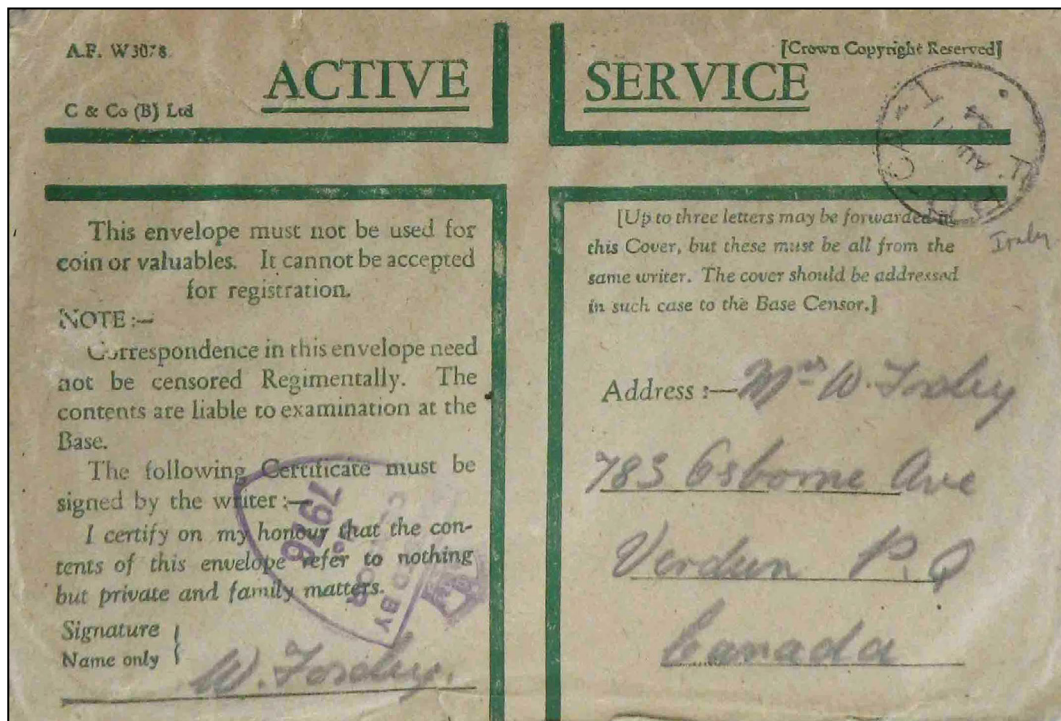 A.F. W3078.
C & Co (B) Ltd
ACTIVE SERVICE
[Crown Copyright Reserved]
This envelope must not be used for
coin or valuables. It cannot be accepted
for registration.
NOTE :—
Correspondence in this envelope need
not be censored Regimentally. The
contents are liable to examination at the
Base.
The following Certificate must be
signed by the writer :—
I certify on my honour that the con-
tents of this envelope refer to nothing
but private and family matters.
Signature
Name only
W.
7976
[Up to three letters may be forwarded in
this Cover, but these must be all from the
same writer. The cover should be addressed
in such case to the Base Censor.]
Address :— Mrs W.
783 Osborne Ave
Verdun P.Q
Canada